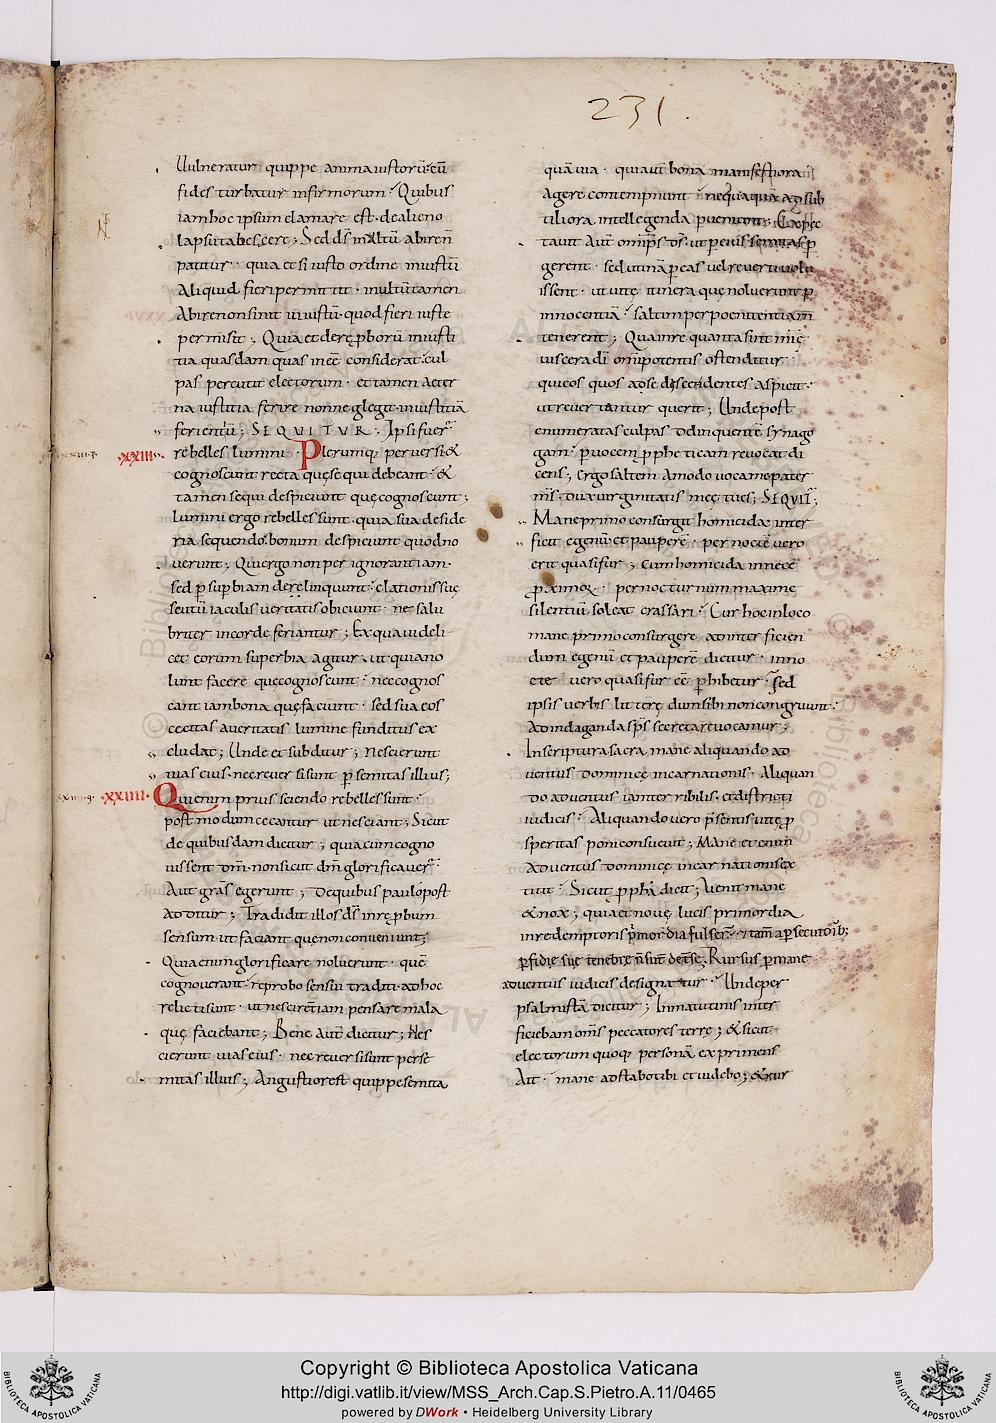 231.
Uulneratur quippe anima iustorū. cū
fides turbatur infirmorum. Quibus
iam hoc ipsum clamare est. de alieno
lapsu tabescere; Sed dš multū abire n̄
patitur. quia et si iusto ordine iniustū
Aliquid fieri permittit. inultū tamen
Abire non sinit iniustū. quod fieri iuste
permisit; Quia et de rep̱borū iniusti
tia quasdam quas in eē considerat. cul
pas percutit electorum. et tamen aeter
na iustitia ferire non neglegit. iniustitiā
ferientiū; SEQUITUR; Ipsi fuer̄
XXIII. rebelles lumini. Plerumq; peruersi &
cognoscunt recta quę sequi debeant. &
tamen sequi despiciunt quę cognoscunt;
Lumini ergo rebelles sunt. quia sua deside
ria sequendo. bonum despiciunt quod no
uerunt; Qui ergo non per ignorantiam.
sed p̱ sup̱biam derelinquunt. elationis suę
scutū iaculis ueritatis obiciunt. ne salu
briter in corde feriantur; Ex qua uideli
cet eorum superbia agitur. ut quia no
lunt facere que cognoscunt. nec cognos
cant iam bona quę faciunt. sed sua eos
cecitas a ueritatis lumine funditus ex
cludat; Unde et subditur; Nescierunt
uias eius. nec reuersi sunt p̱ semitas illius;
XXIIII. Qui enim prius sciendo rebelles sunt.
post modum cecantur ut nesciant; Sicut
de quibusdam dicitur; quia cum cogno
uissent dm̄. non sicut dm̄ glorificauer̄.
Aut grās egerunt; De quibus paulo post
Additur; Tradidit illos dš in rep̱bum
sensum. ut faciant que non conueniunt;
Quia enim glorificare noluerunt. quē
cognouerant. reprobo sensui traditi. ad hoc
relicti sunt. ut nescirent iam pensare mala
quę faciebant; Bene autē dicitur; Nes
cierunt uias eius. nec reuersi sunt per se
mitas illius; Angustior est quippe semita
quā uia. qui autē bona manifestiora
agere contempnunt. nequaquā ad sub
tiliora intellegenda p̱ueniunt; Expec
tauit autē omīps dš. ut p̱ eius semitas p̱
gerent. sed utinā p̱ eas uel reuerti uolu
issent. ut uitę itinera quę noluerunt p̱
innocentiā. saltim per poenitentiam
tenerent; Qua in re quanta sint mię
uiscera dī omīpotentis ostenditur.
qui eos quos a se discedentes aspicit.
ut reuertantur querit; Unde post
enumeratas culpas delinquentē synago
gam. p̱ uocem p̱pheticam reuocat di
cens; Ergo saltem amodo uoca me pater
ms̄. dux uirginitatis meę tu es; SEQUIT̄;
Mane primo consurgit homicida. inter
ficit egenū et pauperē. per noctē uero
erit quasi fur; Cum homicida in necē
p̱ximorū. per nocturnum maxime
silentiū soleat crassari. Cur hoc in loco
mane primo consurgere ad interficien
dum egenū et pauperē dicitur. in no
cte uero quasi fur eē p̱hibetur. Sed
ipsis uerbis litterę dum sibi non congruunt.
Ad indaganda sp̄s secreta reuocamur;
In scriptura sacra mane aliquando ad
uentus dominicę incarnationis. Aliquan
do aduentus iam terribilis. et districti
iudicis. Aliquando uero p̄sentis uitę p̱
speritas poni consueuit; Mane etenim
Aduentus dominicę incarnationis ex
titit. Sicut p̱pha dicit; Uenit mane
& nox; quia et nouę lucis primordia
in redemptoris p̱mordia fulser̄. & tam̄ a p̱secutorib;
p̱fidię suę tenebrę n̄ sunt detersę; Rursus p̱ mane
aduentus iudicis designatur. Unde per
psalmistā dicitur; In matutinis inter
ficiebam om̄s peccatores terrę; & sicut
electorum quoq; personā exprimens
Ait. mane adstabo tibi et uidebo; & rur
Copyright © Biblioteca Apostolica Vaticana
http://digi.vatlib.it/view/MSS_Arch.Cap.S.Pietro.A.11/0465
powered by DWork • Heidelberg University Library
BIBLIOTECA APOSTOLICA VATICANA
BIBLIOTECA APOSTOLICA VATICANA